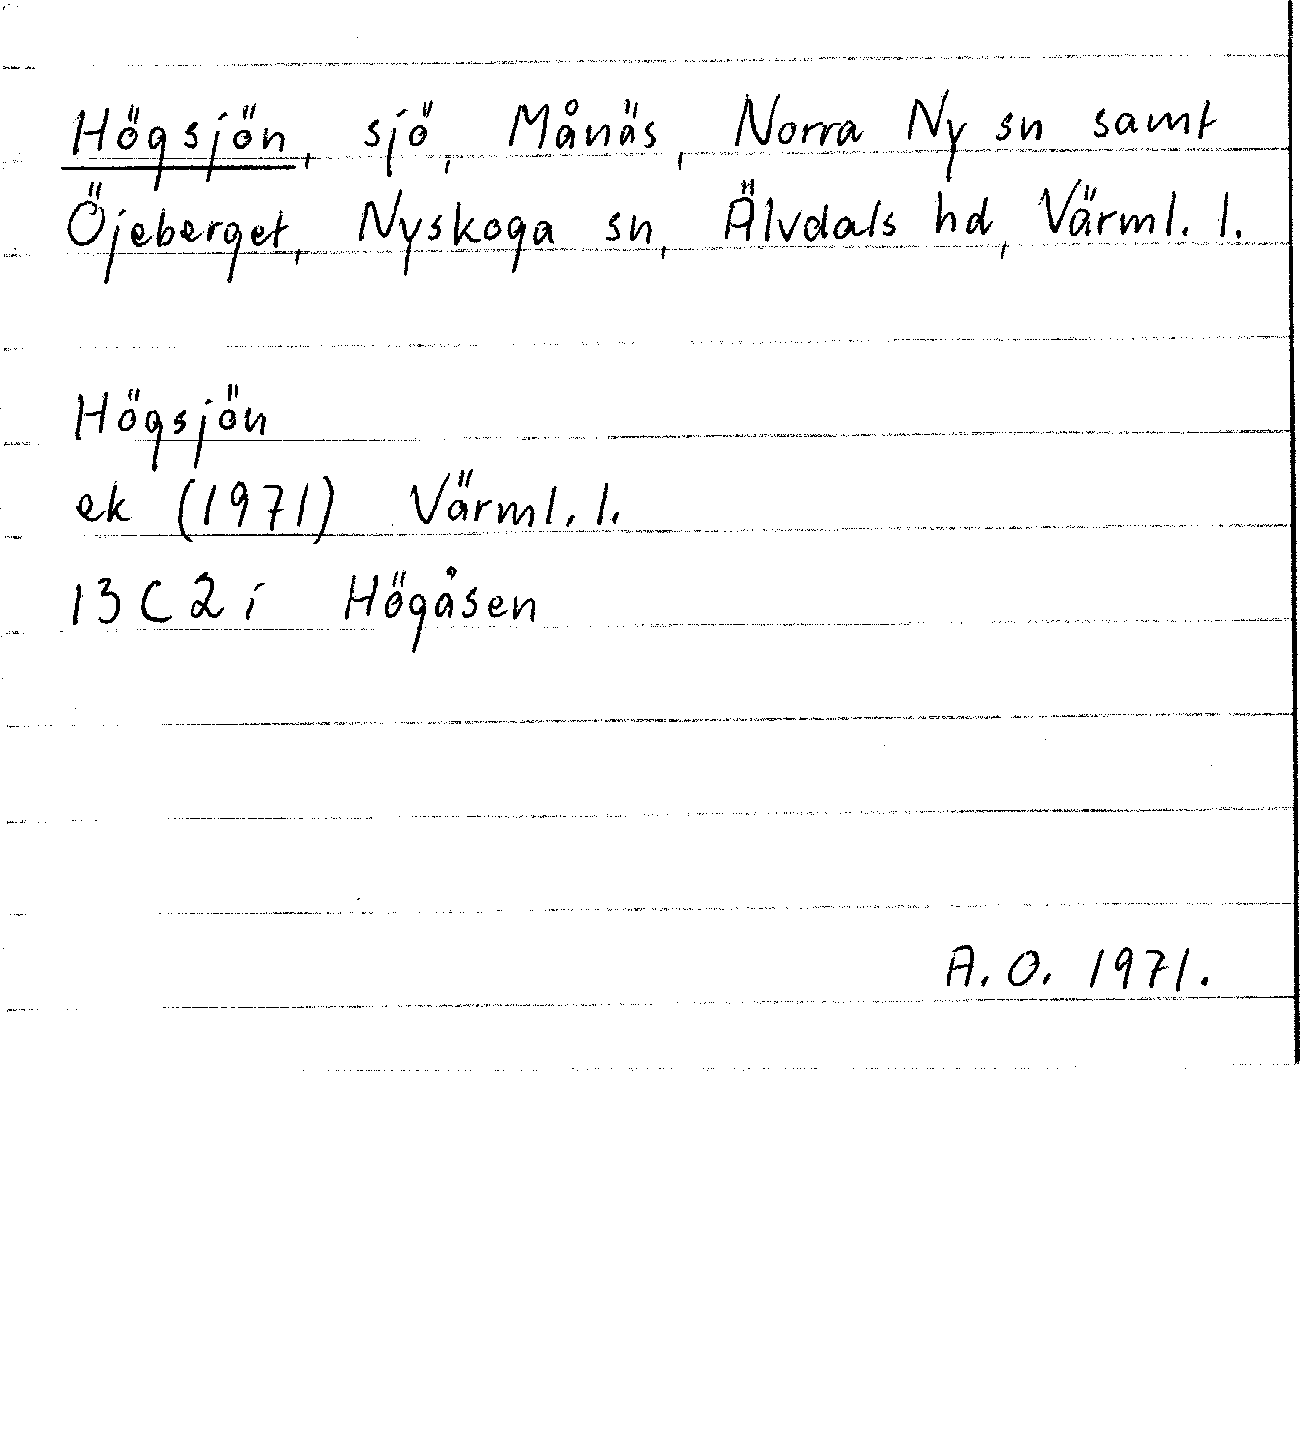 Högsjön, sjö, Månäs, Norra Ny sn samt
Öjeberget, Nyskoga sn, Älvdals hd, Värml. l.
Högsjön
ek (1971) Värml. l.
13 C 2 i Högåsen
A. O. 1971.